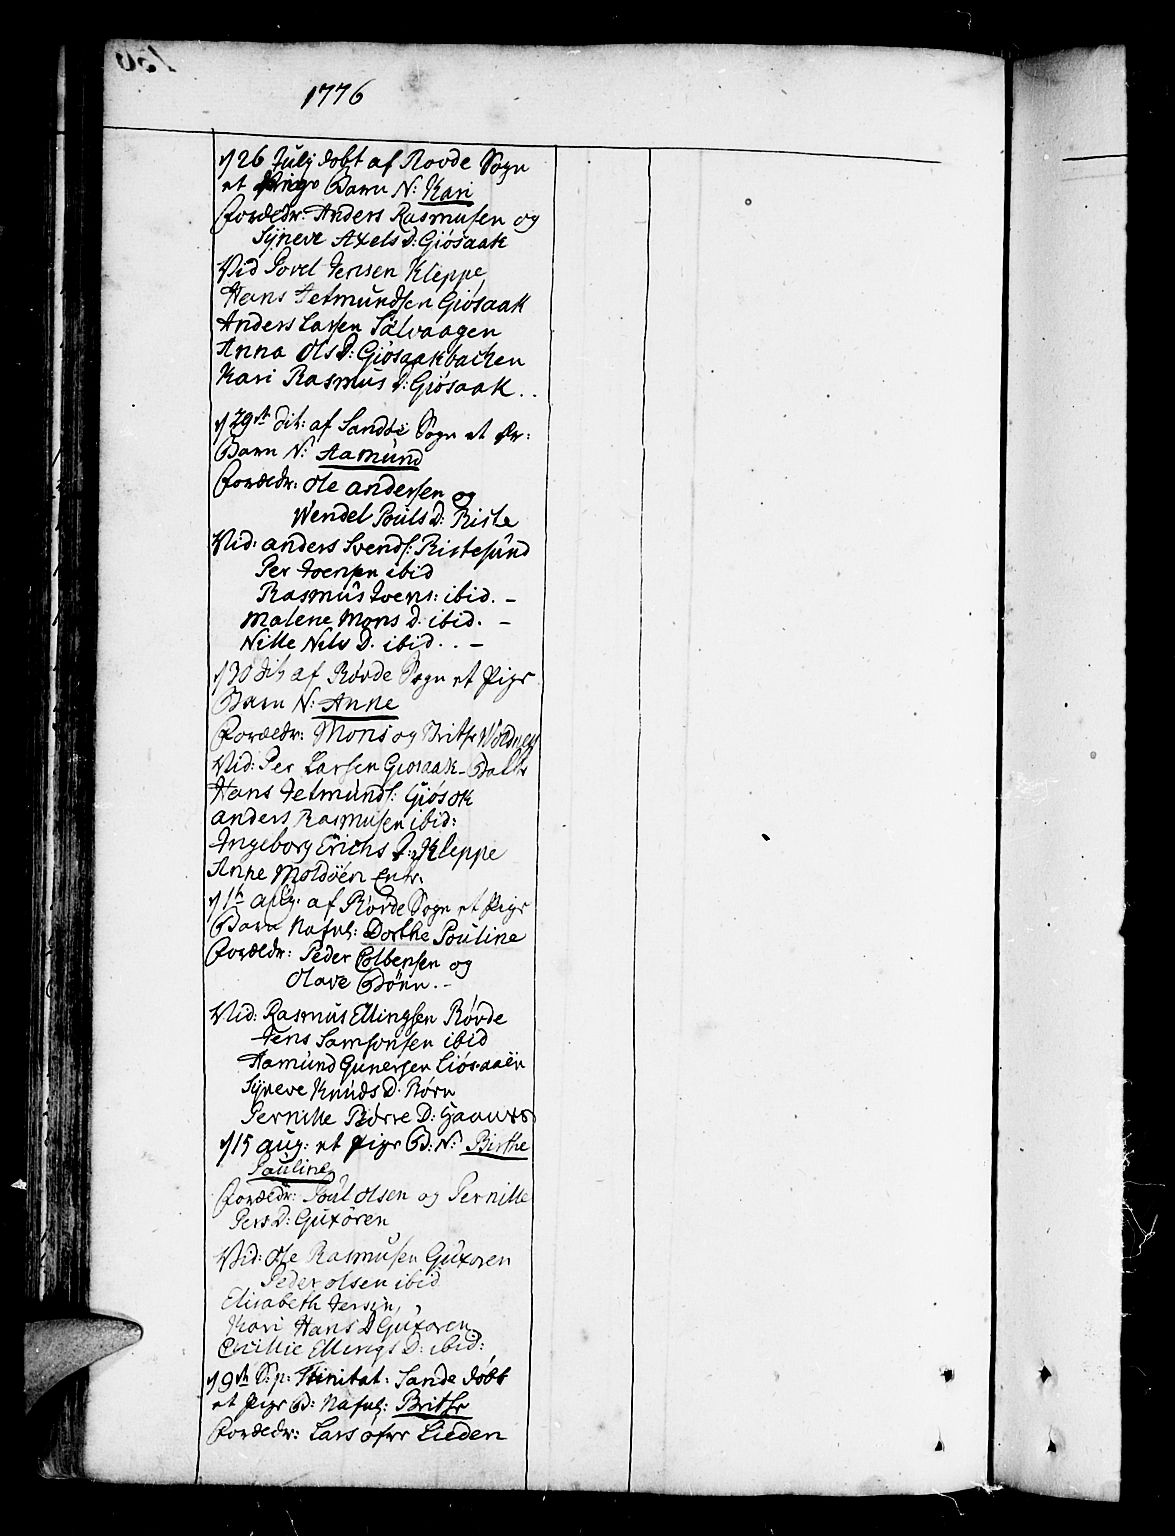 1776
d 26 July døbt af Rovde Sogn
et Pige Barn N: Kari
Forældr: Anders Rasmusen og
Syneve Axels D: Giösaak
Vid Povel Jensen Kleppe
Hans Jetmundsen Giosaak
Anders Larsen Sälvaagen
Anna Ols D: Giösaakbachen
Kari Rasmus D: Giösaak . .
d 29de dit: af Sandøe Sogn et Dr:
Barn N: Aamund
Forældr: Ole andersen og
Wendel Pouls D: Riste
Vid: anders Svends: Ristesund
Per Joensen ibid
Rasmus Ivens: ibid. -
Malene Mons D: ibid. -
Nille Nils D. ibid. . -
d 30 dit af Røvde Sogn et Pige
Barn N: Anne
Forældr: Mons og Brithe
Vid: Per Larsen Giosaak-Bach
Hans Jetmunds: Giösok
anders Rasmusen ibid:
Ingeborg Erichs D: Kleppe
Anne Moldöen Enk:
d 1te aug. af Rövde Sogn et Pige
Barn Nafnl: Dorthe Pouline
Forældr: Peder Colbensen og
Olave Bönn. -
Vid: Rasmus Ellingsen Rövde
Jens Samsonsen ibid
Aamund Gunersen Liösaaën
Syneve Knuds D. Nörn
Pernille Piörre D:
d 15 aug: et pige B: N: Birthe
Pauline
Forældr: Poul Olsen og Pernille
Pers D: Guxören
Vid: Ole Rasmusen Guxoren
Peder Olsen ibid
Elisabeth Jersin,
Kari Hans D Guxoren
Cicillie Ellings D: ibid:
d 9de S: p: Trinitat: Sande døbt
et Pige B: Nafnl: Brithe
Forældr: Lars ofre Lieden